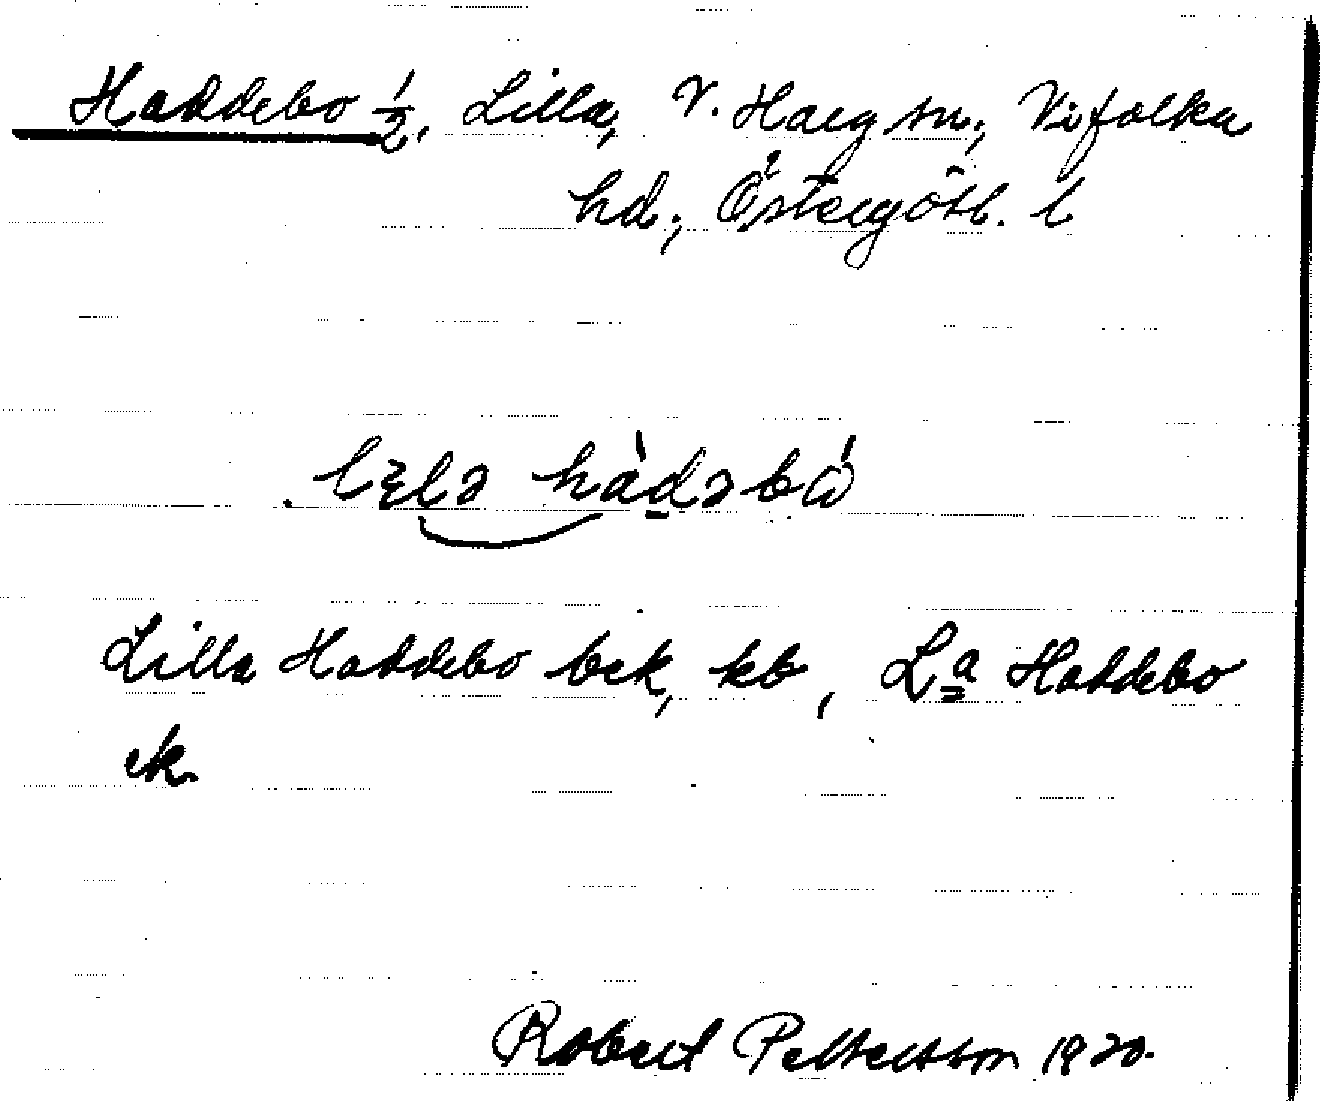 Haddebo 1/2, Lilla, V. Harg sn; Vifolka
hd; Östergötl. l
lɩlə hàdəbó
Lilla Haddebo bek, kb, La Haddebo
ek.
Robert Pettersson 1920.